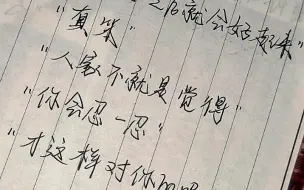 之后就会好起来"
"真笨"
"人家不就是觉得"
"你会忍一忍"
"才这样对你的吗